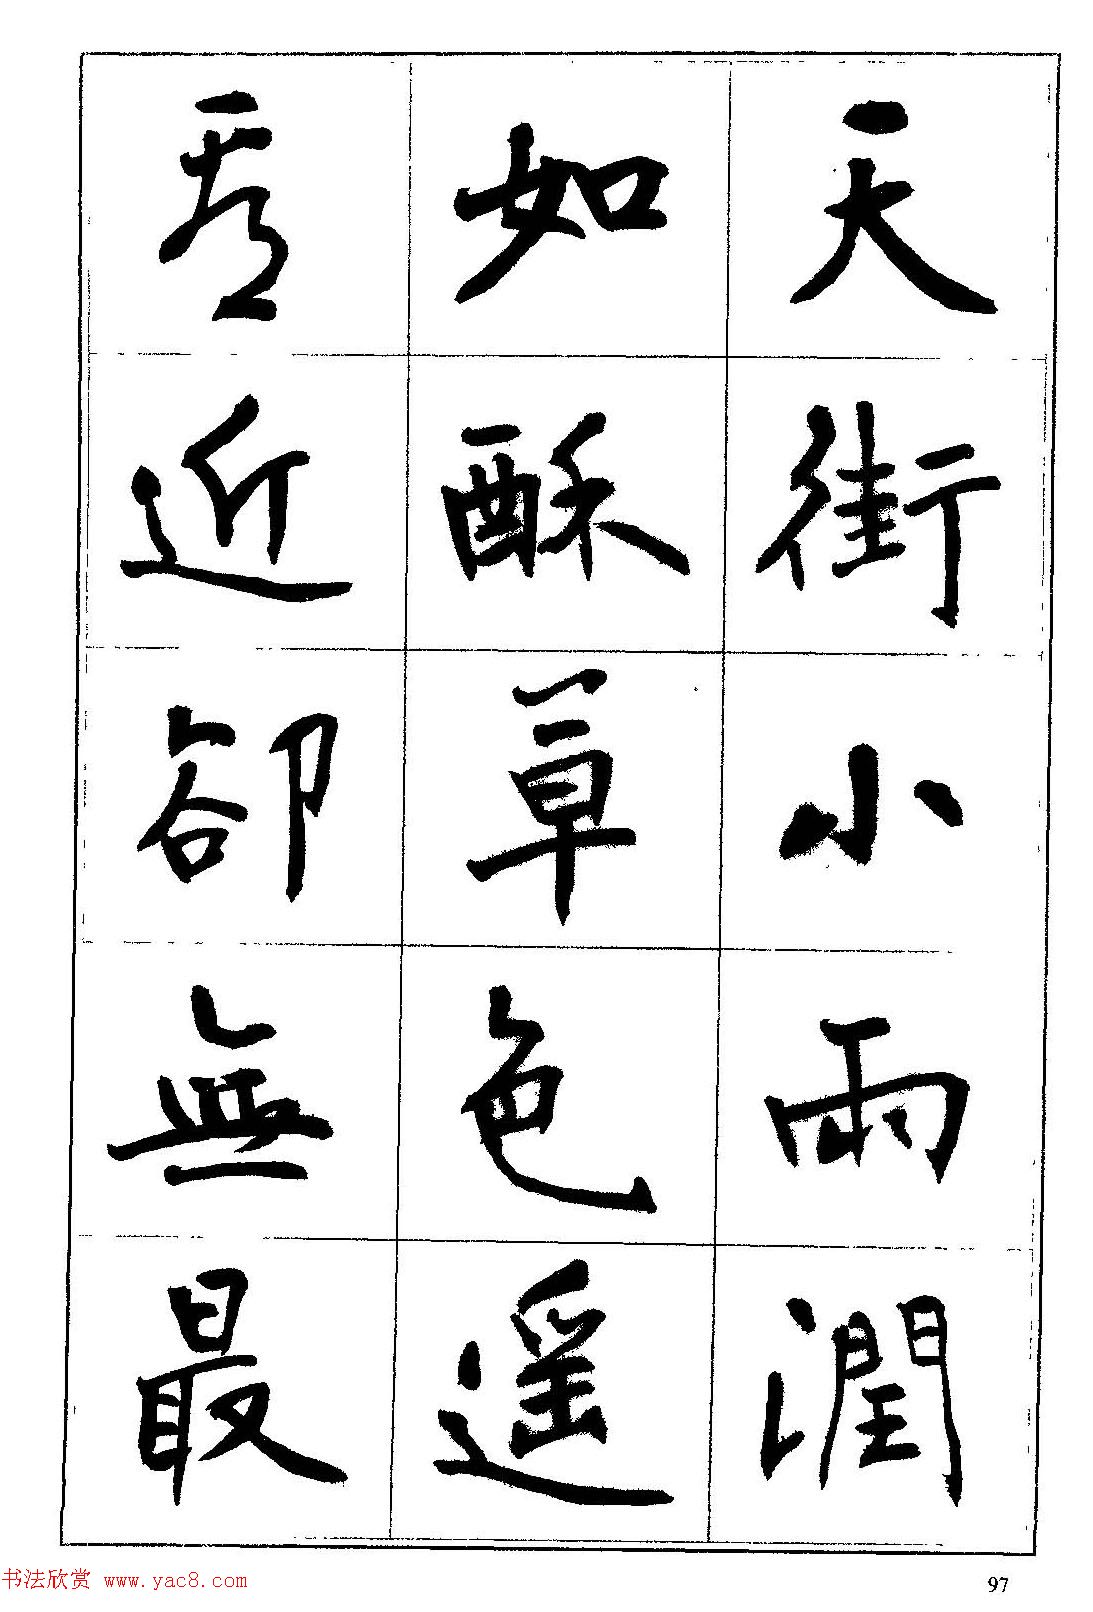 天街小雨潤
如酥草色遥
看近卻無最
书法欣赏 www.yac8.com
97